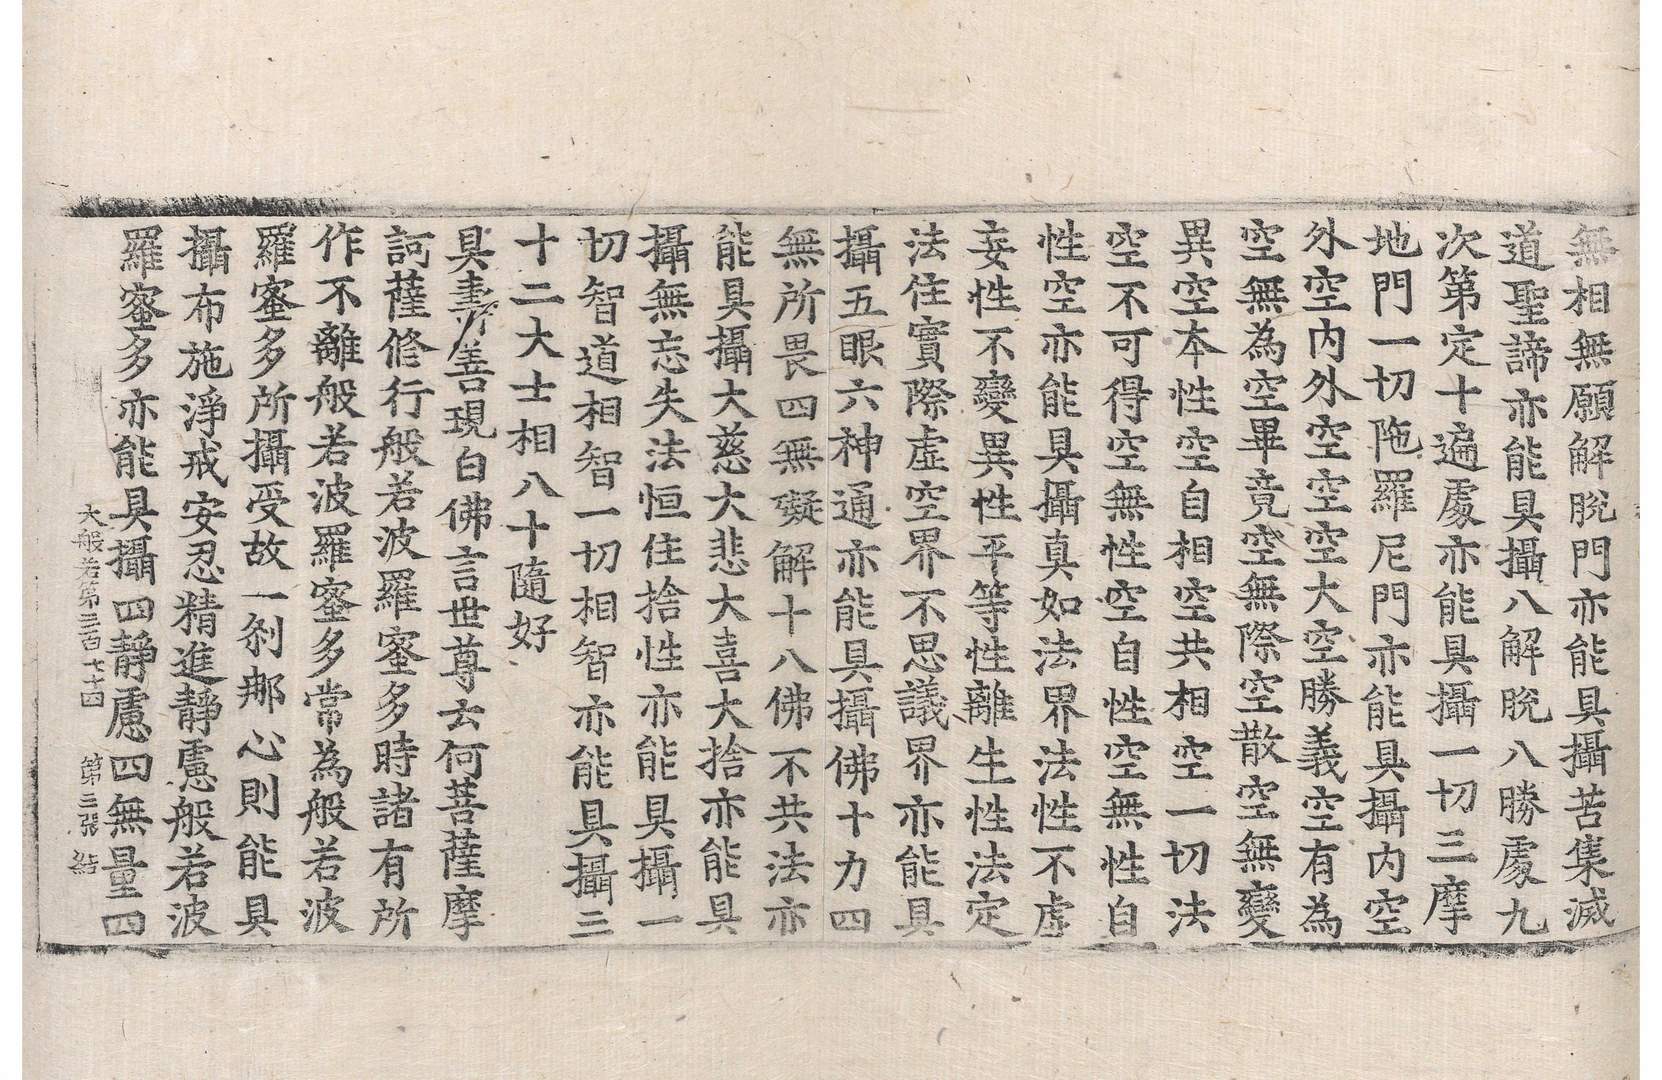 無相無願解脫門亦能具攝苦集滅
道聖諦亦能具攝八解脫八勝處九
次第定十遍處亦能具攝一切三摩
地門一切陁羅尼門亦能具攝內空
外空內外空空空大空勝義空有為
空無為空畢竟空無際空散空無變
異空本性空自相空共相空一切法
空不可得空無性空自性空無性自
性空亦能具攝真如法界法性不虛
妄性不變異性平等性離生性法定
法住實際虛空界不思議界亦能具
攝五眼六神通亦能具攝佛十力四
無所畏四無礙解十八佛不共法亦
能具攝大慈大悲大喜大捨亦能具
攝無忘失法恒住捨性亦能具攝一
切智道相智一切相智亦能具攝三
十二大士相八十隨好
具壽善現白佛言世尊云何菩薩摩
訶薩修行般若波羅蜜多時諸有所
作不離般若波羅蜜多常為般若波
羅蜜多所攝受故一剎那心則能具
攝布施淨戒安忍精進靜慮般若波
羅蜜多亦能具攝四靜慮四無量四
大般若第三百七十四 第三張 結